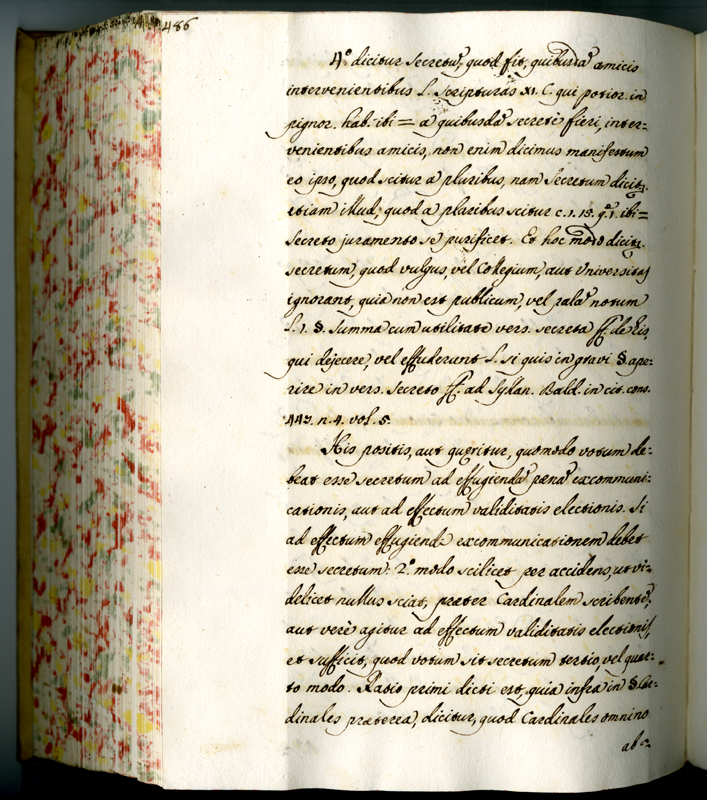 486
4.º dicitur secretũ, quod fit, quibusdã amicis
intervenientibus L. Scripturas XI. C. qui potior. in
pignor. hab. ibi = a quibusdã secretè fieri, inter=
venientibus amicis, non enim dicimus manifestum
eo ipso, quod scitur a pluribus, nam secretum dicitr.
etiam illud, quod a pluribus scitur c. 1. 15. q. 1. ibi =
Secreto juramento se purificet. Et hoc modo dicitr.
secretum, quod vulgus, vel Collegium, aut Universitas
ignorant, quia non est publicum, vel palã notum
L. 1. §. Summa cum utilitate vers. secreta ff. de his,
qui dejecere, vel effuderunt L. si quis in gravi §. ape=
rire in vers. Secreto ff. ad Syllan. Bald. in cit. cons.
443. n. 4. vol. 5.
His positis, aut queritur, quomodo votum de=
beat esse secretum ad effugiendã pænã excommuni=
cationis, aut ad effectum validitatis electionis. Si
ad effectum effugiendi excommunicationem debet
esse secretum 2.º modo scilicet per accidens, ut vi=
delicet nullus sciat, præter Cardinalem scribentẽ,
aut verè agitur ad effectum validitatis electionis,
et sufficit, quod votum sit secretum tertio, vel quar=
to modo. Ratio primi dicti est, quia infra in §. Car=
dinales præterea, dicitur, quod Cardinales omnino
ab=